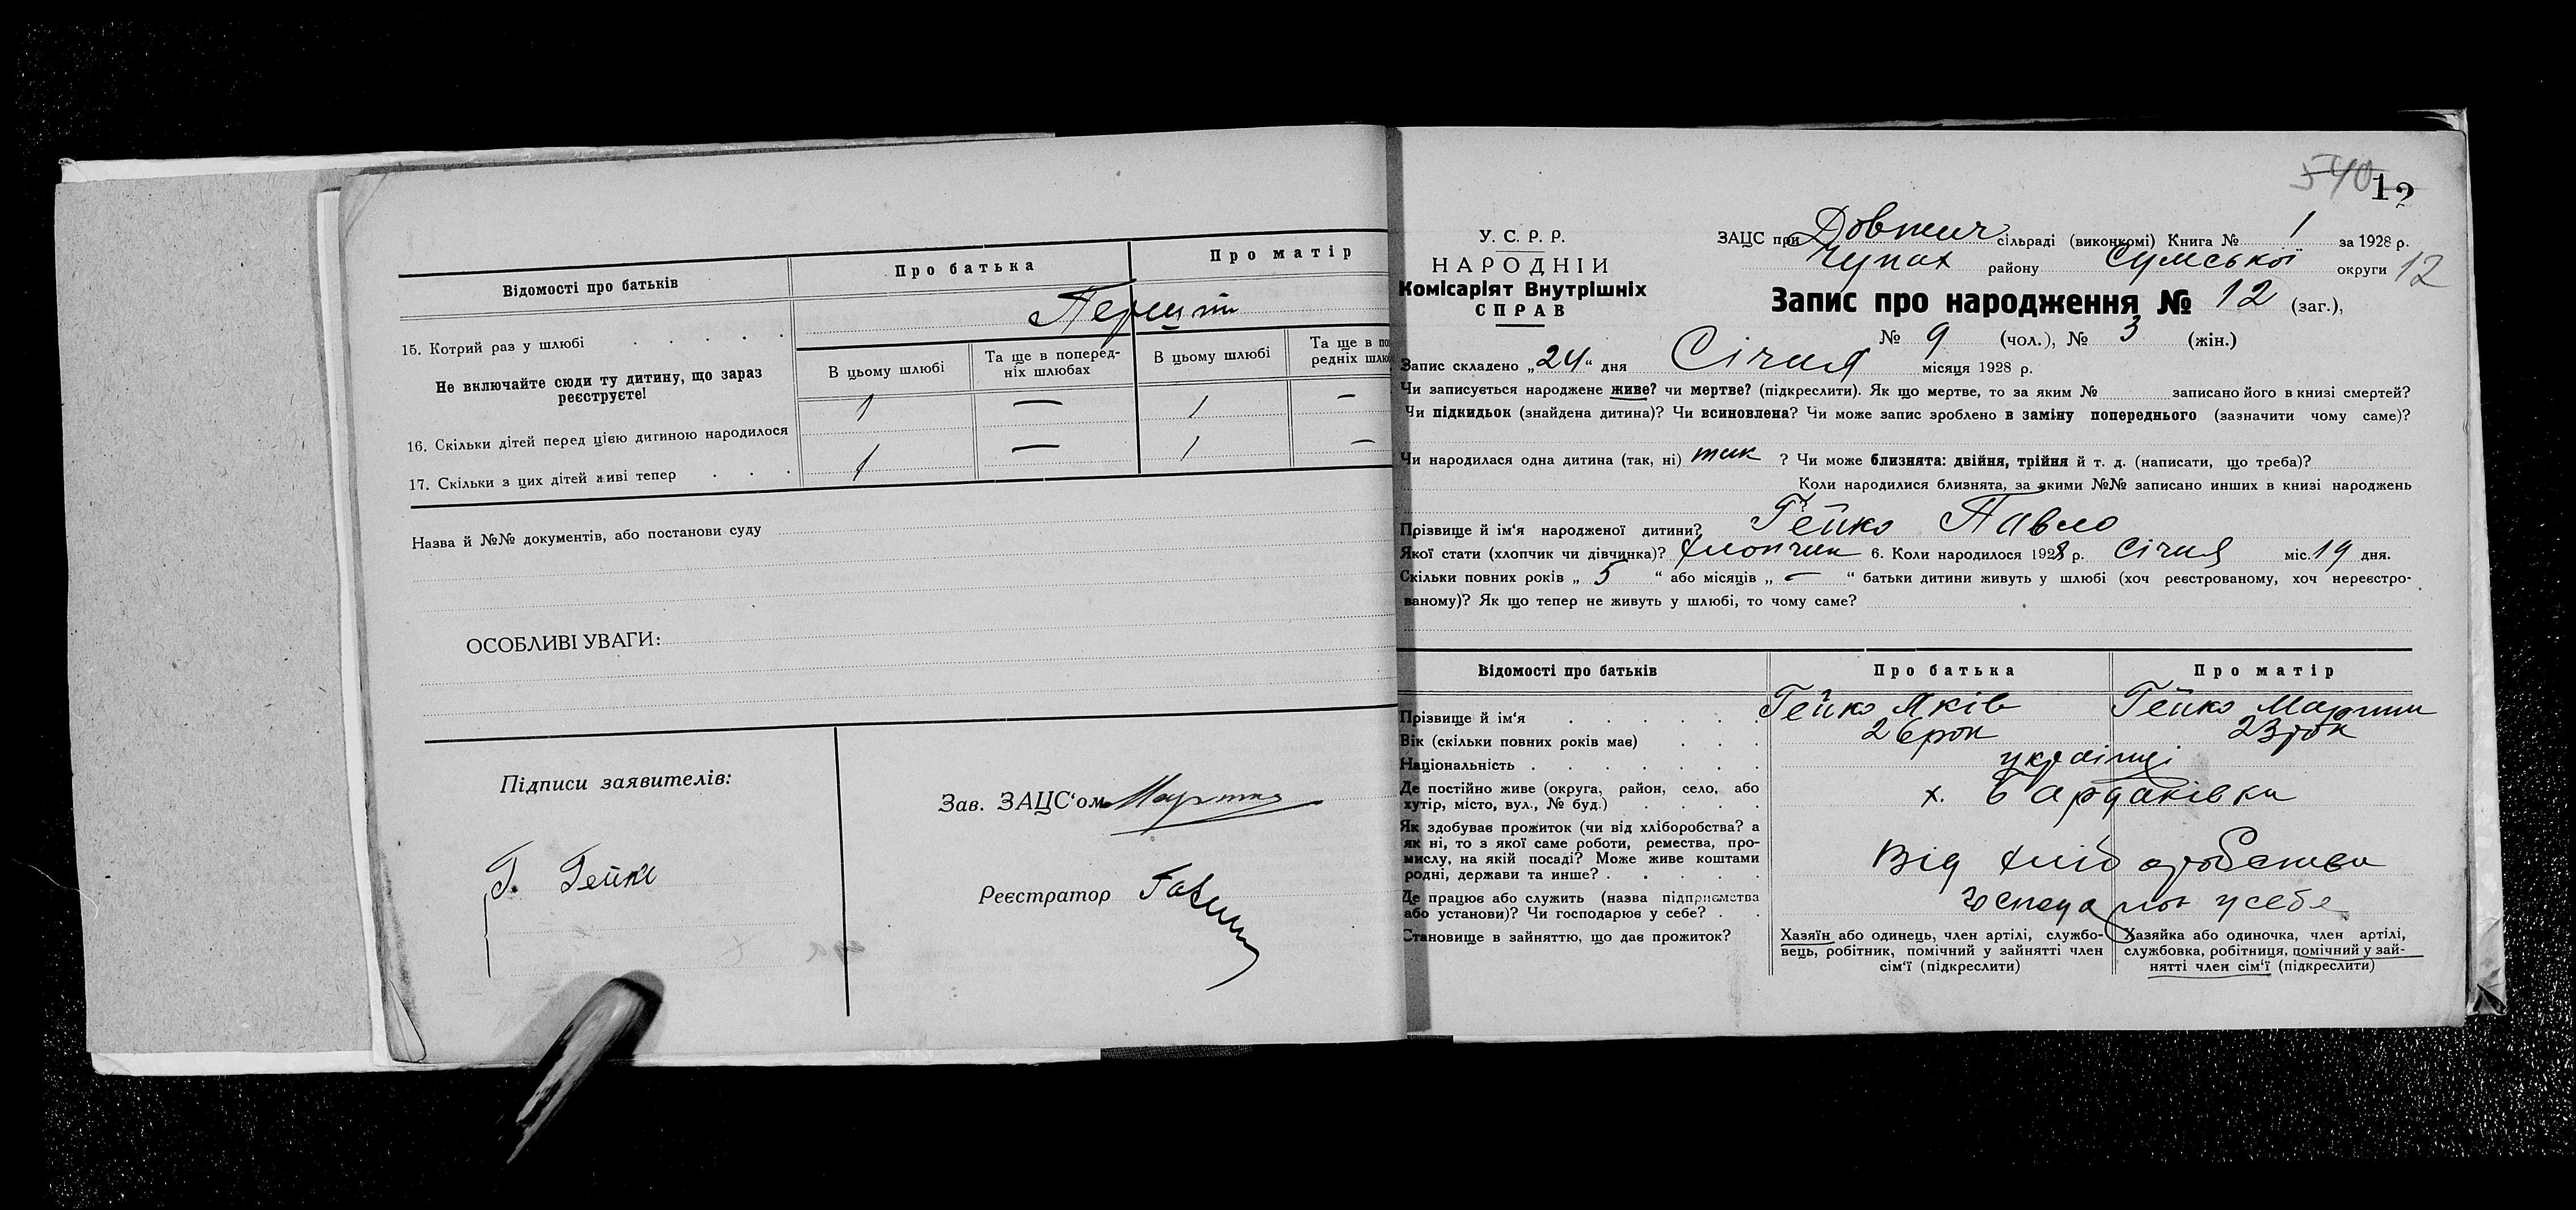 Відомості про батьків
Про батька
Про матір
15. Котрий раз у шлюбі
Не включайте сюди ту дитину, що зараз
реєструєте!
В цьому шлюбі
Та ще в поперед-
ніх шлюбах
В цьому шлюбі
Та ще в по
редніх шлю
16. Скільки дітей перед цією дитиною народилося
1 — 1 —
17. Скільки з цих дітей живі тепер
1 — 1 —
Назва й №№ документів, або постанови суду
ОСОБЛИВІ УВАГИ:
Підписи заявителів:
Зав. ЗАЦС‘ом
Реєстратор
540 12
У. С. Р. Р.
НАРОДНІЙ
Комісаріят Внутрішніх
СПРАВ
ЗАЦС при Довжич сільраді (виконкомі) Книга № 1 за 1928 р.
Чупах району Сумської округи 12
Запис про народження № 12 (заг.),
№ 9 (чол.), № 3 (жін.)
Запис складено „24“ дня Січня місяця 1928 р.
Чи записується народжене живе? чи мертве? (підкреслити). Як що мертве, то за яким № записано його в книзі смертей?
Чи підкидьок (знайдена дитина)? Чи всиновлена? Чи може запис зроблено в заміну попереднього (зазначити чому саме)?
Чи народилася одна дитина (так, ні) так ? Чи може близнята: двійня, трійня й т. д. (написати, що треба)?
Коли народилися близнята, за якими №№ записано инших в книзі народжень
Прізвище й ім‘я народженої дитини? Гейко Павло
Якої стати (хлопчик чи дівчинка)? Хлопчик 6. Коли народилося 1928 р. Січня міс. 19 дня.
Скільки повних років „ 5 “ або місяців „ — “ батьки дитини живуть у шлюбі (хоч реєстрованому, хоч нереєстро-
ваному)? Як що тепер не живуть у шлюбі, то чому саме?
Відомості про батьків
Про батька
Про матір
Прізвище й ім‘я
Гейко Яків
Гейко
Вік (скільки повних років має)
26 рок
23 рок
Національність
українці
Де постійно живе (округа, район, село, або
хутір, місто, вул., № буд.)
х.
Як здобуває прожиток (чи від хліборобства? а
як ні, то з якої саме роботи, ремества, про-
мислу, на якій посаді? Може живе коштами
родні, держави та инше?
Від хліборобства
Де працює або служить (назва підприємства
або установи)? Чи господарює у себе?
у себе
Становище в зайняттю, що дає прожиток?
Хазяїн або одинець, член артілі, службо-
вець, робітник, помічний у зайнятті член
сім‘ї (підкреслити)
Хазяйка або одиночка, член артілі,
службовка, робітниця, помічний у зай-
нятті член сім‘ї (підкреслити)